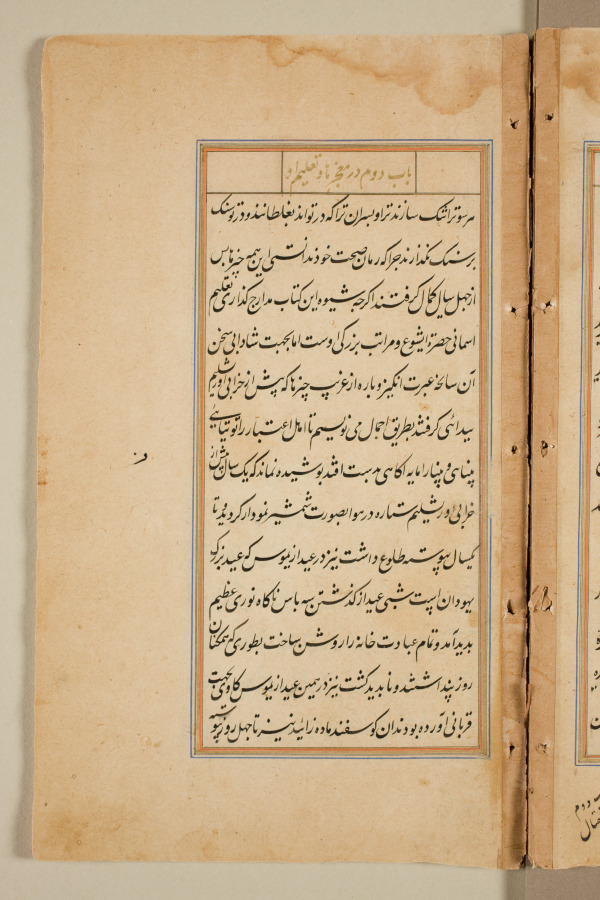 باب دوم در معجزها و تعلیم او
هر سو تراتنک سازند ترا و پسران ترا که در تواند بغلطانند و در تو سنک
بر سنک نکذارند چرا که زمان صحبت خود ندانستی این همه چیزها پس
از چهل سال کمال کرفتند اکرچه شیوه این کتاب مدارج کذاری تعلیم
اسمانی حضرة ایشوع و مراتب بزرکی اوست اما بجهت شادابی سخن
آن سانحه عبرت انکیز و پاره از غرایب چیزها که پیش از خرابی اورشلیم
پیدائی کرفتند بطریق اجمال می نویسیم تا اهل اعتبار را توتیائی
بینایی و بینا را مایه اکاهی بدست افتد پوشیده نماند که یک سال پیش از
خرابی اورشلیم ستاره در هوا بصورت شمشیر نمودار کردید و تا
یکسال پیوسته طلوع داشت نیز در عید ازیموس که عید بزرک
یهودان است شبی عید از کذشتن سه پاس ناکاه نوری عظیم
پدید آمد و تمام عبادت خانه را روشن ساخت بطوری که همکنان
روز پنداشتند و ناپدید کشت نیز در همین عید ازیموس کاوی بجهت
قربانی آورده بودند ان کوسفند ماده زائید نیز تا چهل روز پیوسته